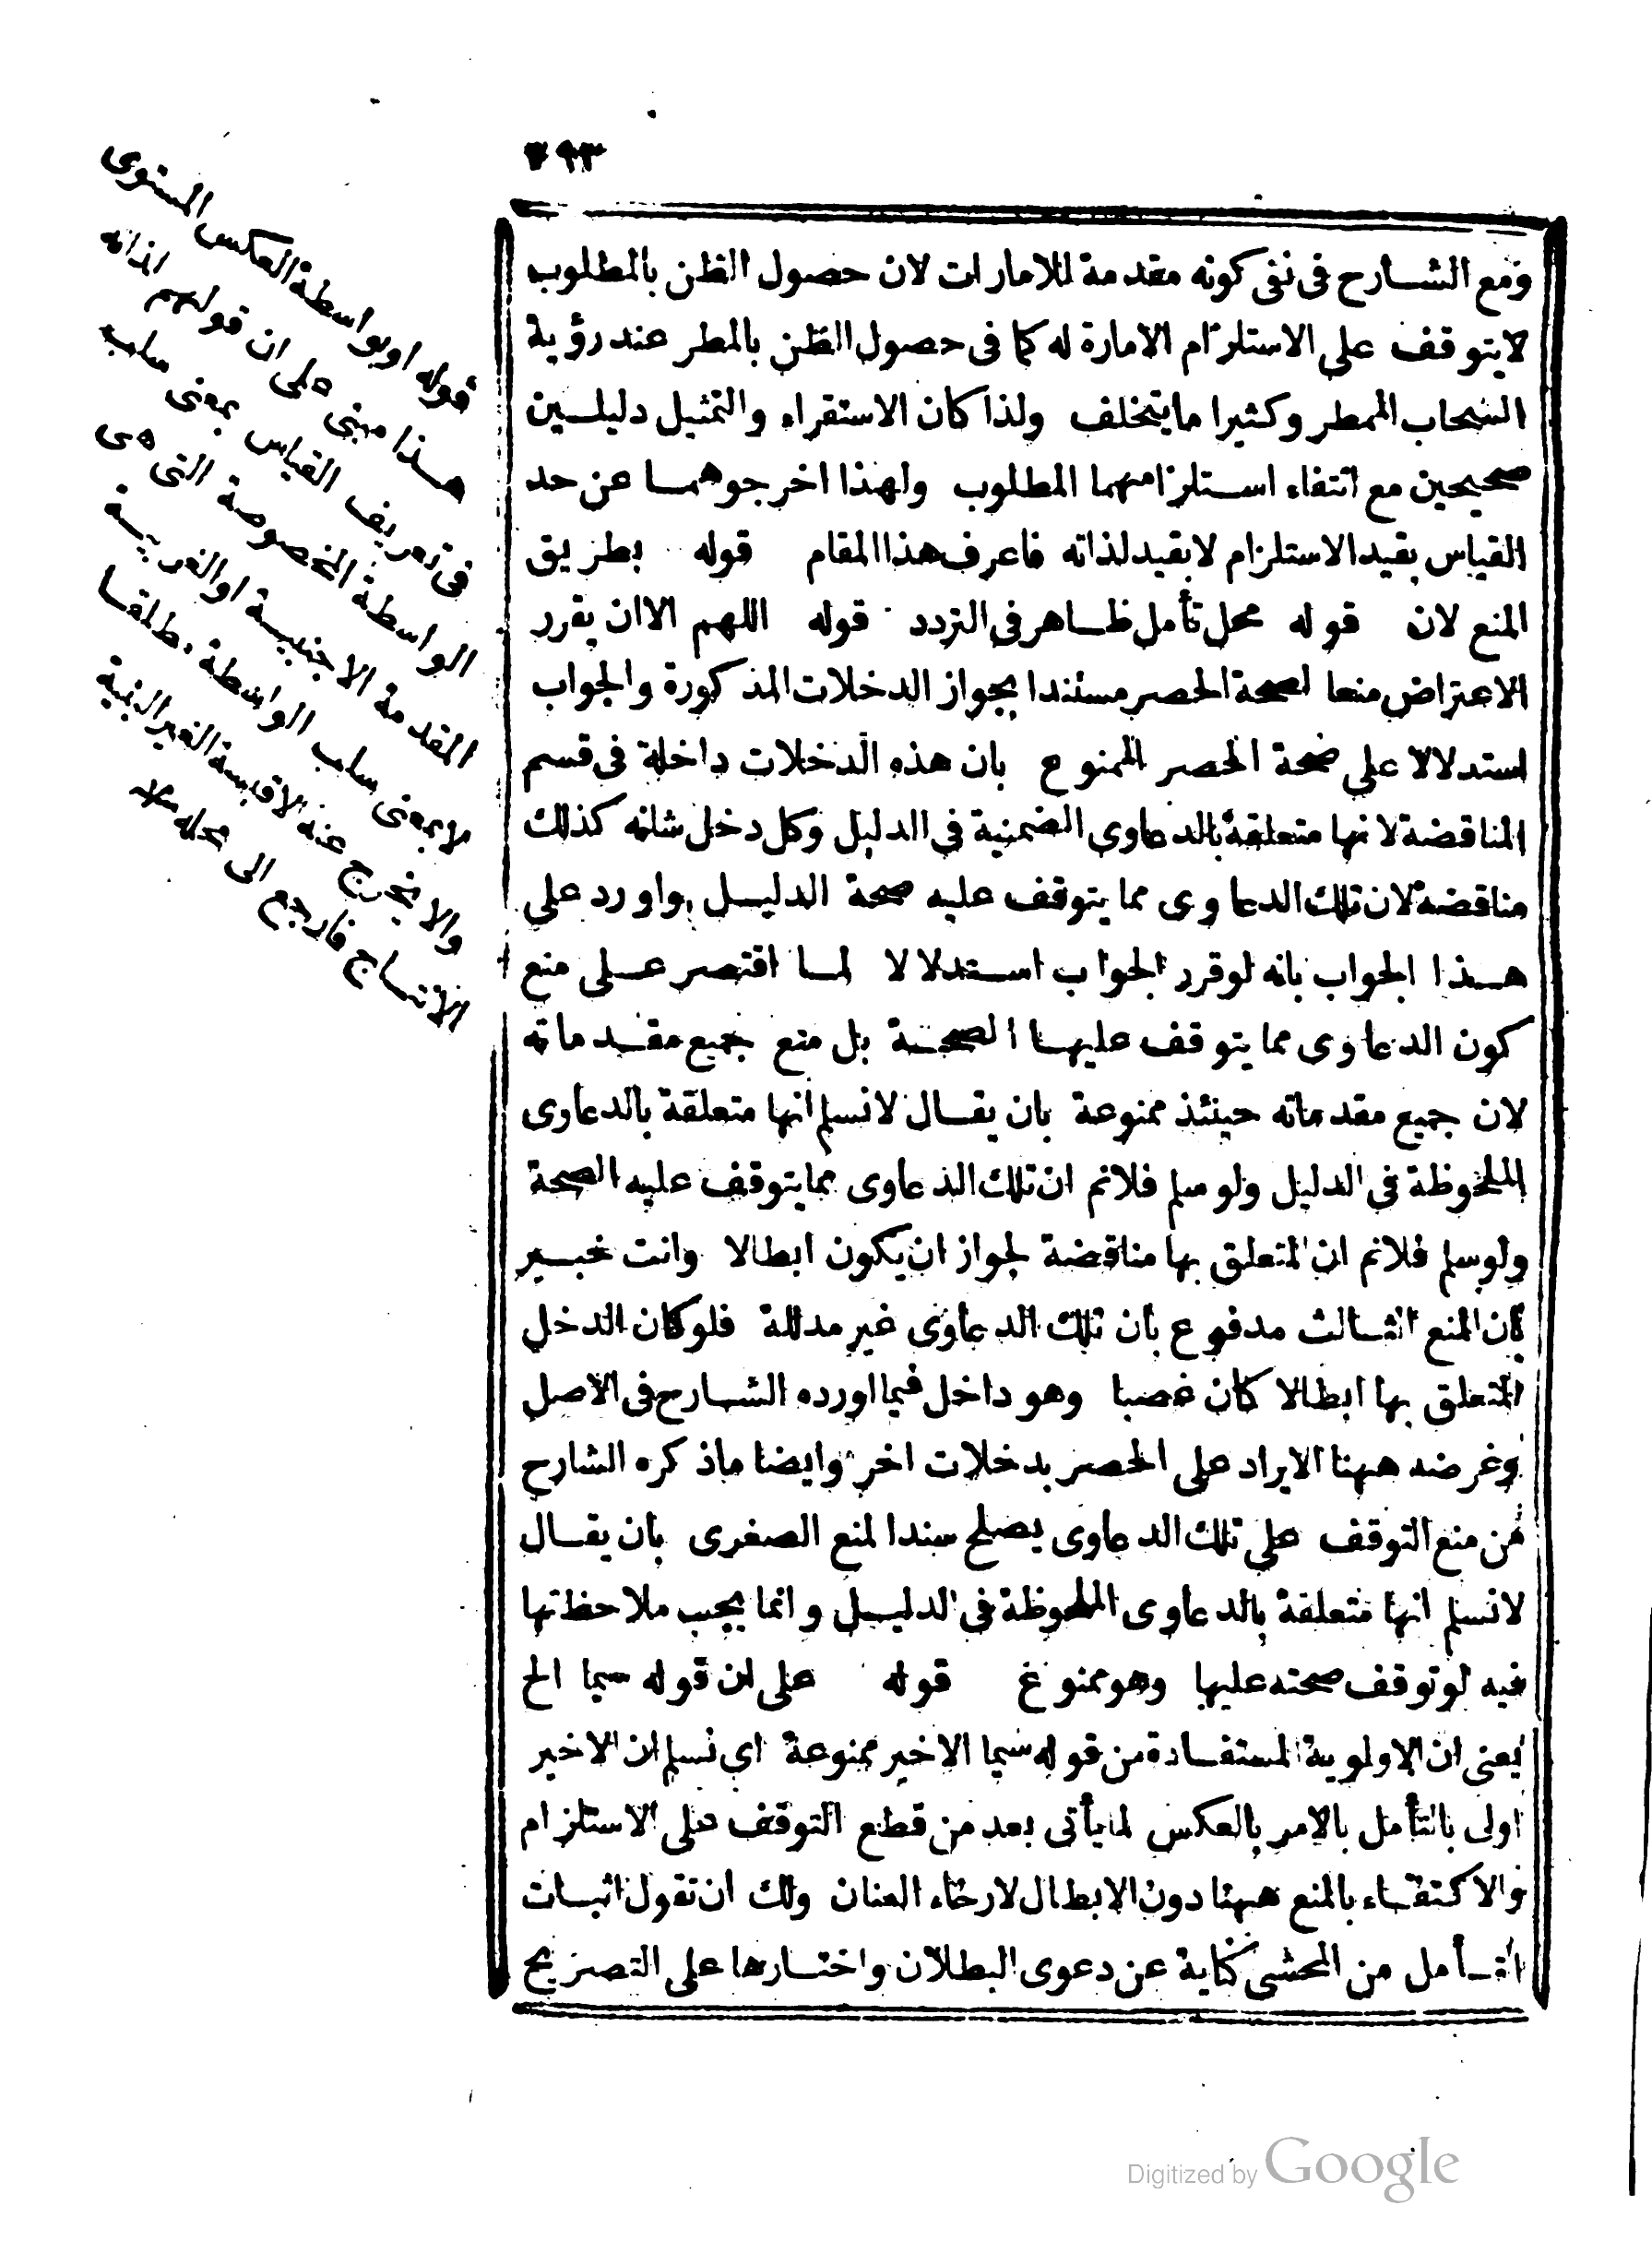 ٣٩٣
ومع الشارح فى نفى كونه مقدمة للامارات لان حصول الظن بالمطلوب
لايتوقف على الاستلزام الامارة له كما فى حصول الظن بالمطر عند رؤية
السحاب الممطر وكثيرا مايتخلف ولذا كان الاستقراء والتمثيل دليلين
صحيحين مع انتفاء استلزامهما المطلوب ولهذا اخرجوهما عن حد
القياس بقيد الاستلزام لابقيد لذاته فاعرف هذا المقام قوله بطريق
المنع لان قوله محل تأمل ظاهر فى التردد قوله اللهم الا ان يقرر
الاعتراض منعا لصحة الحصر مستندا بجواز الدخلات المذكورة والجواب
استدلالا على صحة الحصر الممنوع بان هذه الدخلات داخلة فى قسم
المناقضة لانها متعلقة بالدعاوى الضمنية فى الدليل وكل دخل شانه كذلك
مناقضة لان تلك الدعاوى مما يتوقف عليه صحة الدليل واورد على
هذا الجواب بانه لوقرر الجواب استدلالا لما اقتصر على منع
كون الدعاوى مما يتوقف عليها الصحة بل منع جميع مقدماته
لان جميع مقدماته حينئذ ممنوعة بان يقال لانسلم انها متعلقة بالدعاوى
الملحوظة فى الدليل ولو سلم فلانم ان تلك الدعاوى مما يتوقف عليه الصحة
ولو سلم فلانم ان المتعلق بها مناقضة لجواز ان يكون ابطالا وانت خبير
بان المنع الثالث مدفوع بان تلك الدعاوى غير مدللة فلو كان الدخل
المتعلق بها ابطالا كان غصبا وهو داخل فيما اورده الشارح فى الاصل
وغرضه ههنا الايراد على الحصر بدخلات اخر وايضا ماذكره الشارح
من منع التوقف على تلك الدعاوى يصلح سندا لمنع الصغرى بان يقال
لانسلم انها متعلقة بالدعاوى الملحوظة فى الدليل وانما يجب ملاحظتها
فيه لوتوقف صحته عليها وهو ممنوع قوله على ان قوله سيما الخ
يعنى ان الاولوية المستفادة من قوله سيما الاخير ممنوعة اى نسلم ان الاخير
اولى بالتأمل بالامر بالعكس لما يأتى بعد من قطع التوقف على الاستلزام
والاكتفاء بالمنع ههنا دون الابطال لارخاء العنان ولك ان تقول اثبات
التأمل من المحشى كناية عن دعوى البطلان واختارها على التصريح
قوله اوبواسطة العكس المستوى
هذا مبنى على ان قولهم لذاته
فى تعريف القياس بمعنى سلب
الواسطة المخصوصة التى هى
المقدمة الاجنبية او الغريبة
لا بمعنى سلب الواسطة مطلقا
والا يخرج عنه الاقيسة الغير البينة
الانتاج فارجع الى محله
Digitized by Google